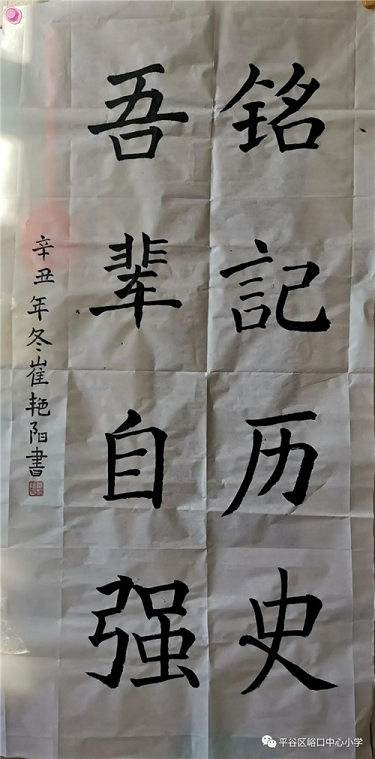 铭記历史
吾辈自强
辛丑年冬崔艳阳書
平谷区峪口中心小学